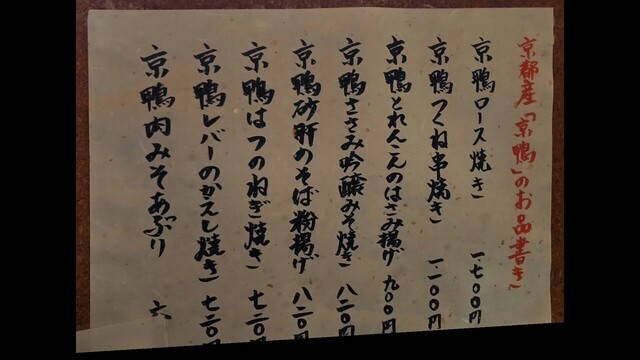 京都産「京鴨」のお品書き
京鴨ロース焼き 一、七〇〇円
京鴨つくね串焼き 一、二〇〇円
京鴨とれんこんのはさみ揚げ 九〇〇円
京鴨ささみ吟醸みそ焼き 八二〇円
京鴨砂肝のそば粉揚げ 八二〇円
京鴨はつのねぎ焼き 七二〇円
京鴨レバーのかえし焼き 七二〇円
京鴨肉みそあぶり 六